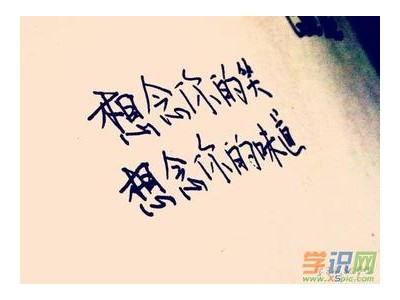 想念你的笑
想念你的味道
学识网
www.XSpic.com